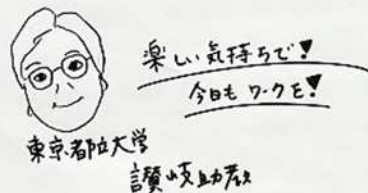 楽しい気持ちで!
今日もワークを!
東京都立大学
讃岐助教